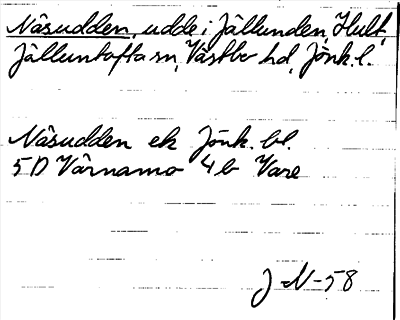 Näsudden, udde i Jällunden, Hult,
Jälluntofta sn, Västbo hd, Jönk. l.
Näsudden ek Jönk. bl.
5D Värnamo 4b Vare
J-N-58